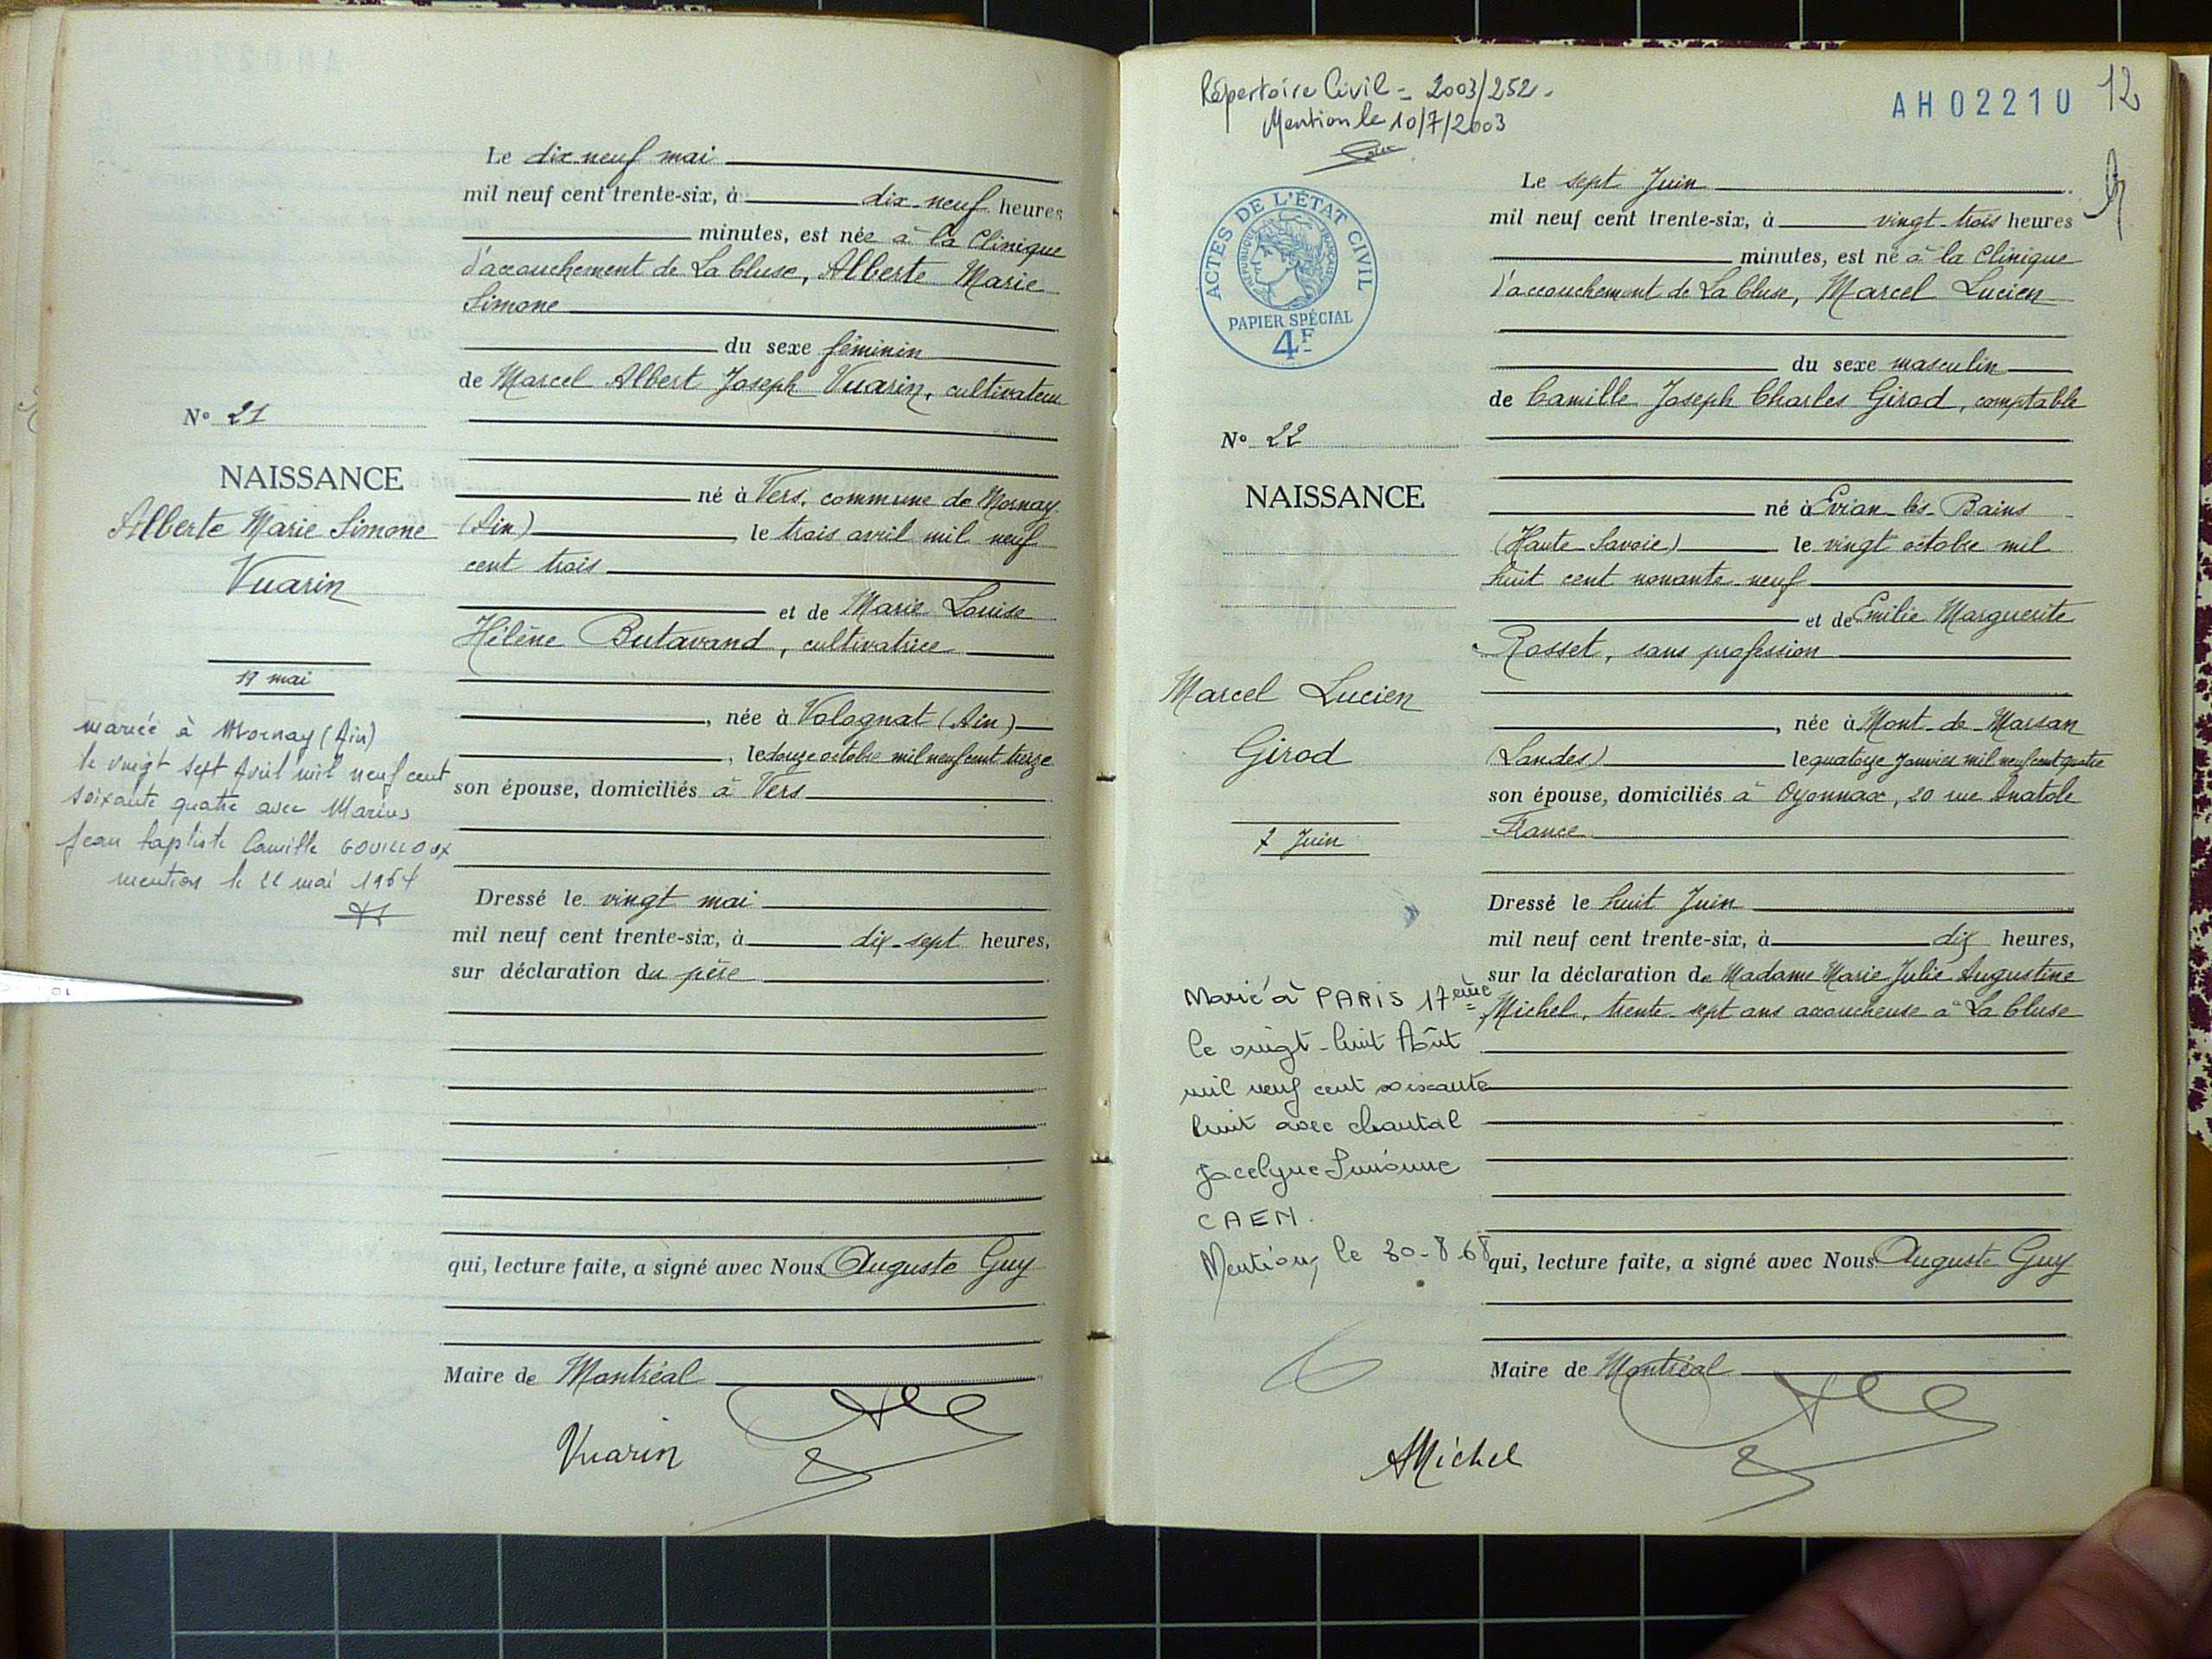 Le dix-neuf mai
mil neuf cent trente-six, à dix-neuf heures
minutes, est née à la Clinique
d'accouchement de La Cluse, Alberte Marie
Simone
du sexe féminin
de Marcel Albert Joseph Vuarin, cultivateur
né à Vers, commune de Mornay
(Ain) le trois avril mil neuf
cent trois
et de Marie Louise
Hélène Butavand, cultivatrice
, née à Volognat (Ain)
, le douze octobre mil neuf cent treize
son épouse, domiciliés à Vers
Dressé le vingt mai
mil neuf cent trente-six, à dix-sept heures,
sur déclaration du père
qui, lecture faite, a signé avec Nous Auguste Guy
Maire de Montréal
Vuarin
N° 21
NAISSANCE
Alberte Marie Simone
Vuarin
19 mai
mariée à Mornay (Ain)
le vingt sept Avril mil neuf cent
soixante quatre avec Marius
Jean baptiste Camille GOUILLOUX
mention le 22 mai 1964
Répertoire Civil = 2003/252.
Mention le 10/7/2003
AH02210
12
ACTES DE L'ÉTAT CIVIL
RÉPUBLIQUE FRANÇAISE
PAPIER SPÉCIAL
4F
N° 22
NAISSANCE
Marcel Lucien
Girod
7 Juin
Marié à PARIS 17ème
le vingt-huit Août
mil neuf cent soixante
huit avec Chantal
Jocelyne Simonne
CAEN.
Mention, le 30-8-68
Le sept Juin
mil neuf cent trente-six, à vingt-trois heures
minutes, est né à la Clinique
d'accouchement de La Cluse, Marcel Lucien
du sexe masculin
de Camille Joseph Charles Girod, comptable
né à Evian-les-Bains
(Haute-Savoie) le vingt octobre mil
huit cent nonante-neuf
et de Emilie Marguerite
Rosset, sans profession
, née à Mont-de-Marsan
(Landes) le quatorze Janvier mil neuf cent quatre
son épouse, domiciliés à Oyonnax, 20 rue Anatole
France
Dressé le huit Juin
mil neuf cent trente-six, à dix heures,
sur la déclaration de Madame Marie Julie Augustine
Michel, trente-sept ans accoucheuse à La Cluse
qui, lecture faite, a signé avec Nous Auguste Guy
Maire de Montréal
AMichel